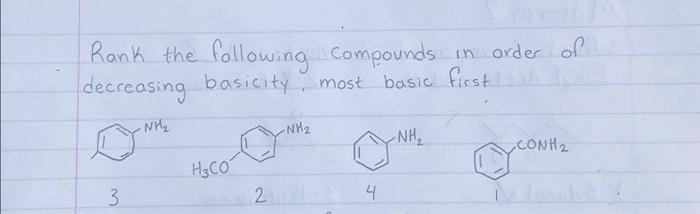 Rank the following compounds in order of
decreasing basicity, most basic first
NH₂ NH₂ NH₂ CONH₂
H₃CO
3 2 4 1